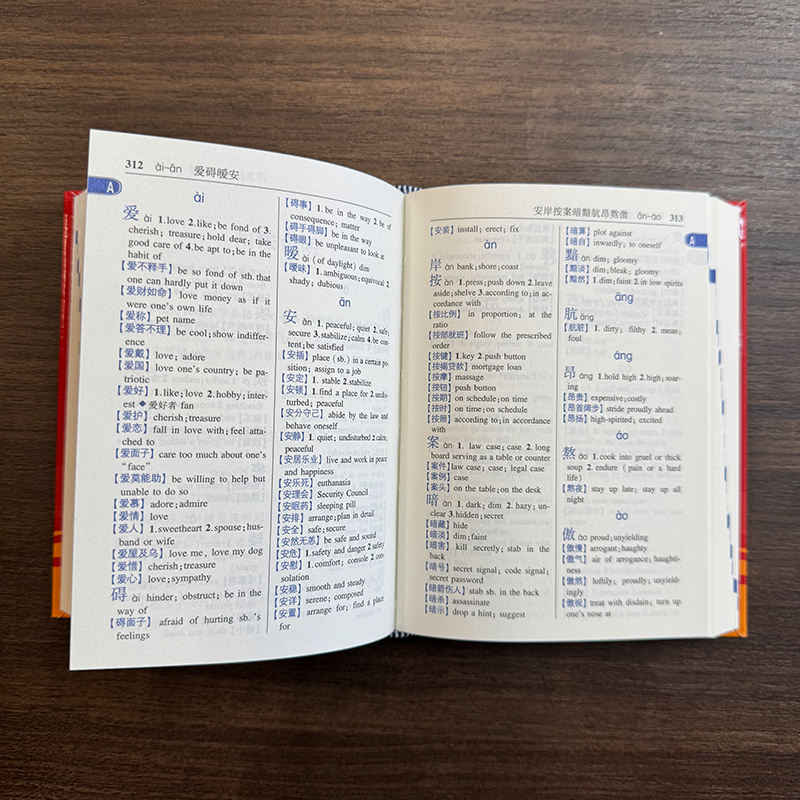 312 ài-ān 爱碍暧安
A
ài
爱 ài 1.love 2.like; be fond of 3.
cherish; treasure; hold dear; take
good care of 4.be apt to; be in the
habit of
【爱不释手】 be so fond of sth. that
one can hardly put it down
【爱财如命】 love money as if it
were one's own life
【爱称】 pet name
【爱答不理】 be cool; show indiffer-
ence
【爱戴】 love; adore
【爱国】 love one's country; be pa-
triotic
【爱好】 1.like; love 2.hobby; inter-
est ◆爱好者 fan
【爱护】 cherish; treasure
【爱恋】 fall in love with; feel atta-
ched to
【爱面子】 care too much about one's
“face”
【爱莫能助】 be willing to help but
unable to do so
【爱慕】 adore; admire
【爱情】 love
【爱人】 1.sweetheart 2.spouse; hus-
band or wife
【爱屋及乌】 love me, love my dog
【爱惜】 cherish; treasure
【爱心】 love; sympathy
碍 ài hinder; obstruct; be in the
way of
【碍面子】 afraid of hurting sb.'s
feelings
【碍事】 1.be in the way 2.be of
consequence; matter
【碍手碍脚】 be in the way
【碍眼】 be unpleasant to look at
暧 ài (of daylight) dim
【暧昧】 1.ambiguous; equivocal 2.
shady; dubious
ān
安 ān 1. peaceful; quiet 2. safe;
secure 3.stabilize; calm 4.be con-
tent; be satisfied
【安插】 place (sb.) in a certain po-
sition; assign to a job
【安定】 1. stable 2.stabilize
【安顿】 1.find a place for 2.undis-
turbed; peaceful
【安分守己】 abide by the law and
behave oneself
【安静】 1. quiet; undisturbed 2.calm;
peaceful
【安居乐业】 live and work in peace
and happiness
【安乐死】 euthanasia
【安理会】 Security Council
【安眠药】 sleeping pill
【安排】 arrange; plan in detail
【安全】 safe; secure
【安然无恙】 be safe and sound
【安危】 1.safety and danger 2.safety
【安慰】 1.comfort; console 2.con-
solation
【安稳】 smooth and steady
【安详】 serene; composed
【安置】 arrange for; find a place
for
安岸按案暗黯肮昂熬傲 ān-ào 313
A
【安装】 install; erect; fix
àn
岸 àn bank; shore; coast
按 àn 1.press; push down 2.leave
aside; shelve 3.according to; in ac-
cordance with
【按比例】 in proportion; at the
ratio
【按部就班】 follow the prescribed
order
【按键】 1.key 2.push button
【按揭贷款】 mortgage loan
【按摩】 massage
【按钮】 push button
【按期】 on schedule; on time
【按时】 on time; on schedule
【按照】 according to; in accordance
with
案 àn 1. law case; case 2. long
board serving as a table or counter
【案件】 law case; case; legal case
【案例】 case
【案头】 on the table; on the desk
暗 àn 1. dark; dim 2. hazy; un-
clear 3.hidden; secret
【暗藏】 hide
【暗淡】 dim; faint
【暗害】 kill secretly; stab in the
back
【暗号】 secret signal; code signal;
secret password
【暗箭伤人】 stab sb. in the back
【暗杀】 assassinate
【暗示】 drop a hint; suggest
【暗算】 plot against
【暗自】 inwardly; to oneself
黯 àn dim; gloomy
【黯淡】 dim; bleak; gloomy
【黯然】 1.dim; faint 2.in low spirits
āng
肮 āng
【肮脏】 1. dirty; filthy 2. mean;
foul
áng
昂 áng 1.hold high 2.high; soar-
ing
【昂贵】 expensive; costly
【昂首阔步】 stride proudly ahead
【昂扬】 high-spirited; excited
áo
熬 áo 1. cook into gruel or thick
soup 2. endure (pain or a hard
life)
【熬夜】 stay up late; stay up all
night
ào
傲 ào proud; unyielding
【傲慢】 arrogant; haughty
【傲气】 air of arrogance; haughti-
ness
【傲然】 loftily; proudly; unyield-
ingly
【傲视】 treat with disdain; turn up
one's nose at